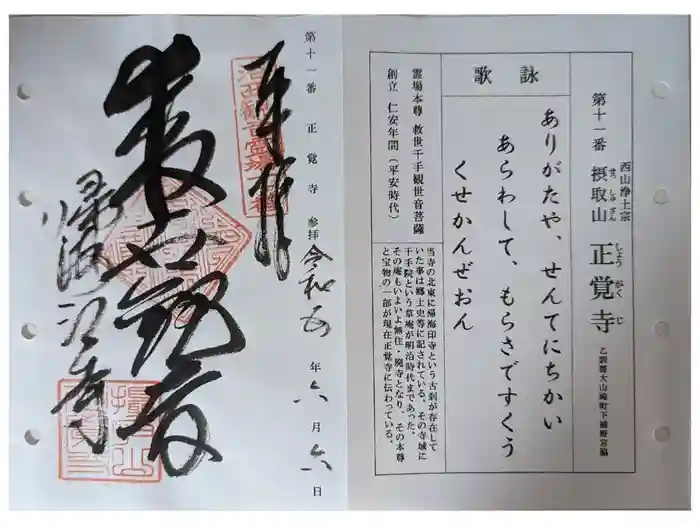 西山浄土宗
第十一番 摂取山 正覚寺
せっしゅざん しょうがくじ
乙訓郡大山崎町下植野宮脇
詠歌
ありがたや、せんてにちかい
あらわして、もらさですくう
くせかんぜおん
霊場本尊 救世千手観世音菩薩
創立 仁安年間(平安時代)
当寺の北東に帰海印寺という古刹が存在して
いた事は郷土史等に記されている。その寺域に
千手院という草庵が明治時代まであった。
その庵もいよいよ無住・廃寺となり、その本尊
と宝物の一部が現在正覚寺に伝わっている。
第十一番 正覚寺 参拝 令和五年六月六日
奉拝